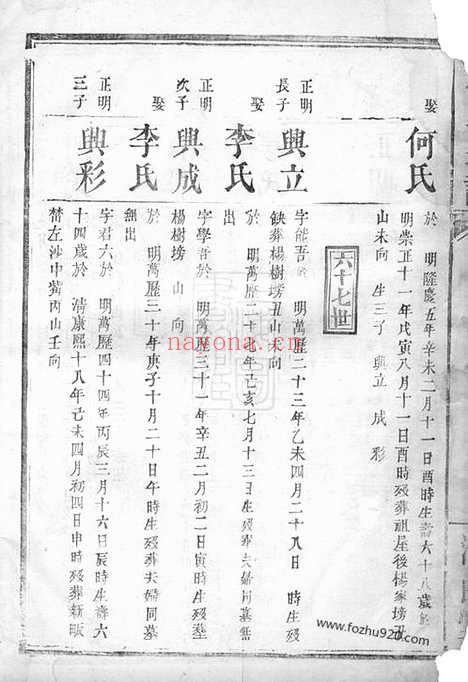 娶
何氏
於 明隆慶五年辛未二月十一日酉時生壽六十八歲於
明崇正十一年戊寅八月十一日酉時歿葬祖屋後楊家塝丑
山未向 生三子 興立 成 彩
六十七世
正明
長子
興立
字能吾 明萬歷二十三年乙未四月二十八日 時生歿
缺葬楊樹塝丑山未向
娶
李氏
於 明萬歷二十七年己亥七月十三日 生歿葬夫婦同墓無
出
正明
次子
興成
字學吾於 明萬歷三十一年辛丑二月初二日寅時生歿墓
楊樹塝 山 向
娶
李氏
於 明萬歷二十年庚子十月二十日午時生歿葬夫婦同墓
無出
正明
三子
興彩
字君六於 明萬歷四十四年丙辰三月十六日辰時生壽六
十四歲於 清康熙十八年己未四月初四日申時歿葬新畈
林左沙中嘴丙山壬向
族谱网
www.fozhu920.com